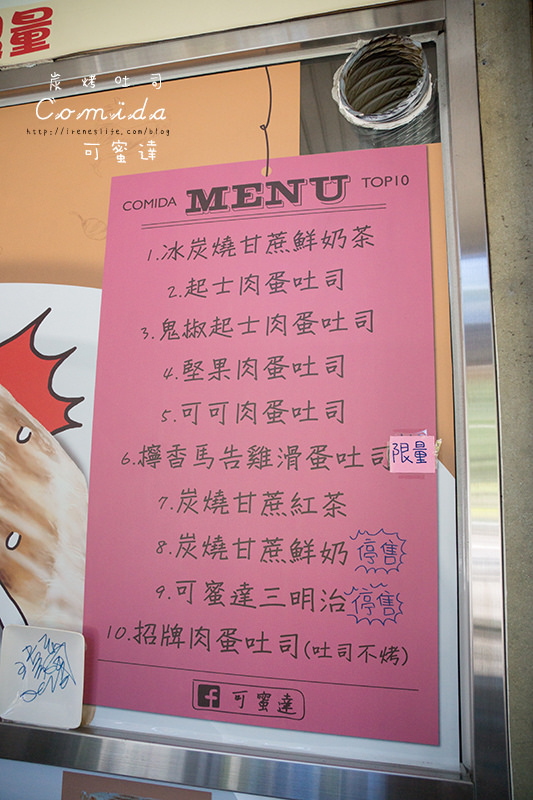 量
炭烤吐司
Comida
http://ireneslife.com/blog
可蜜達
COMIDA MENU TOP10
1.冰炭燒甘蔗鮮奶茶
2.起士肉蛋吐司
3.鬼椒起士肉蛋吐司
4.堅果肉蛋吐司
5.可可肉蛋吐司
6.檸香馬告雞滑蛋吐司 限量
7.炭燒甘蔗紅茶
8.炭燒甘蔗鮮奶 停售
9.可蜜達三明治 停售
10.招牌肉蛋吐司(吐司不烤)
f 可蜜達